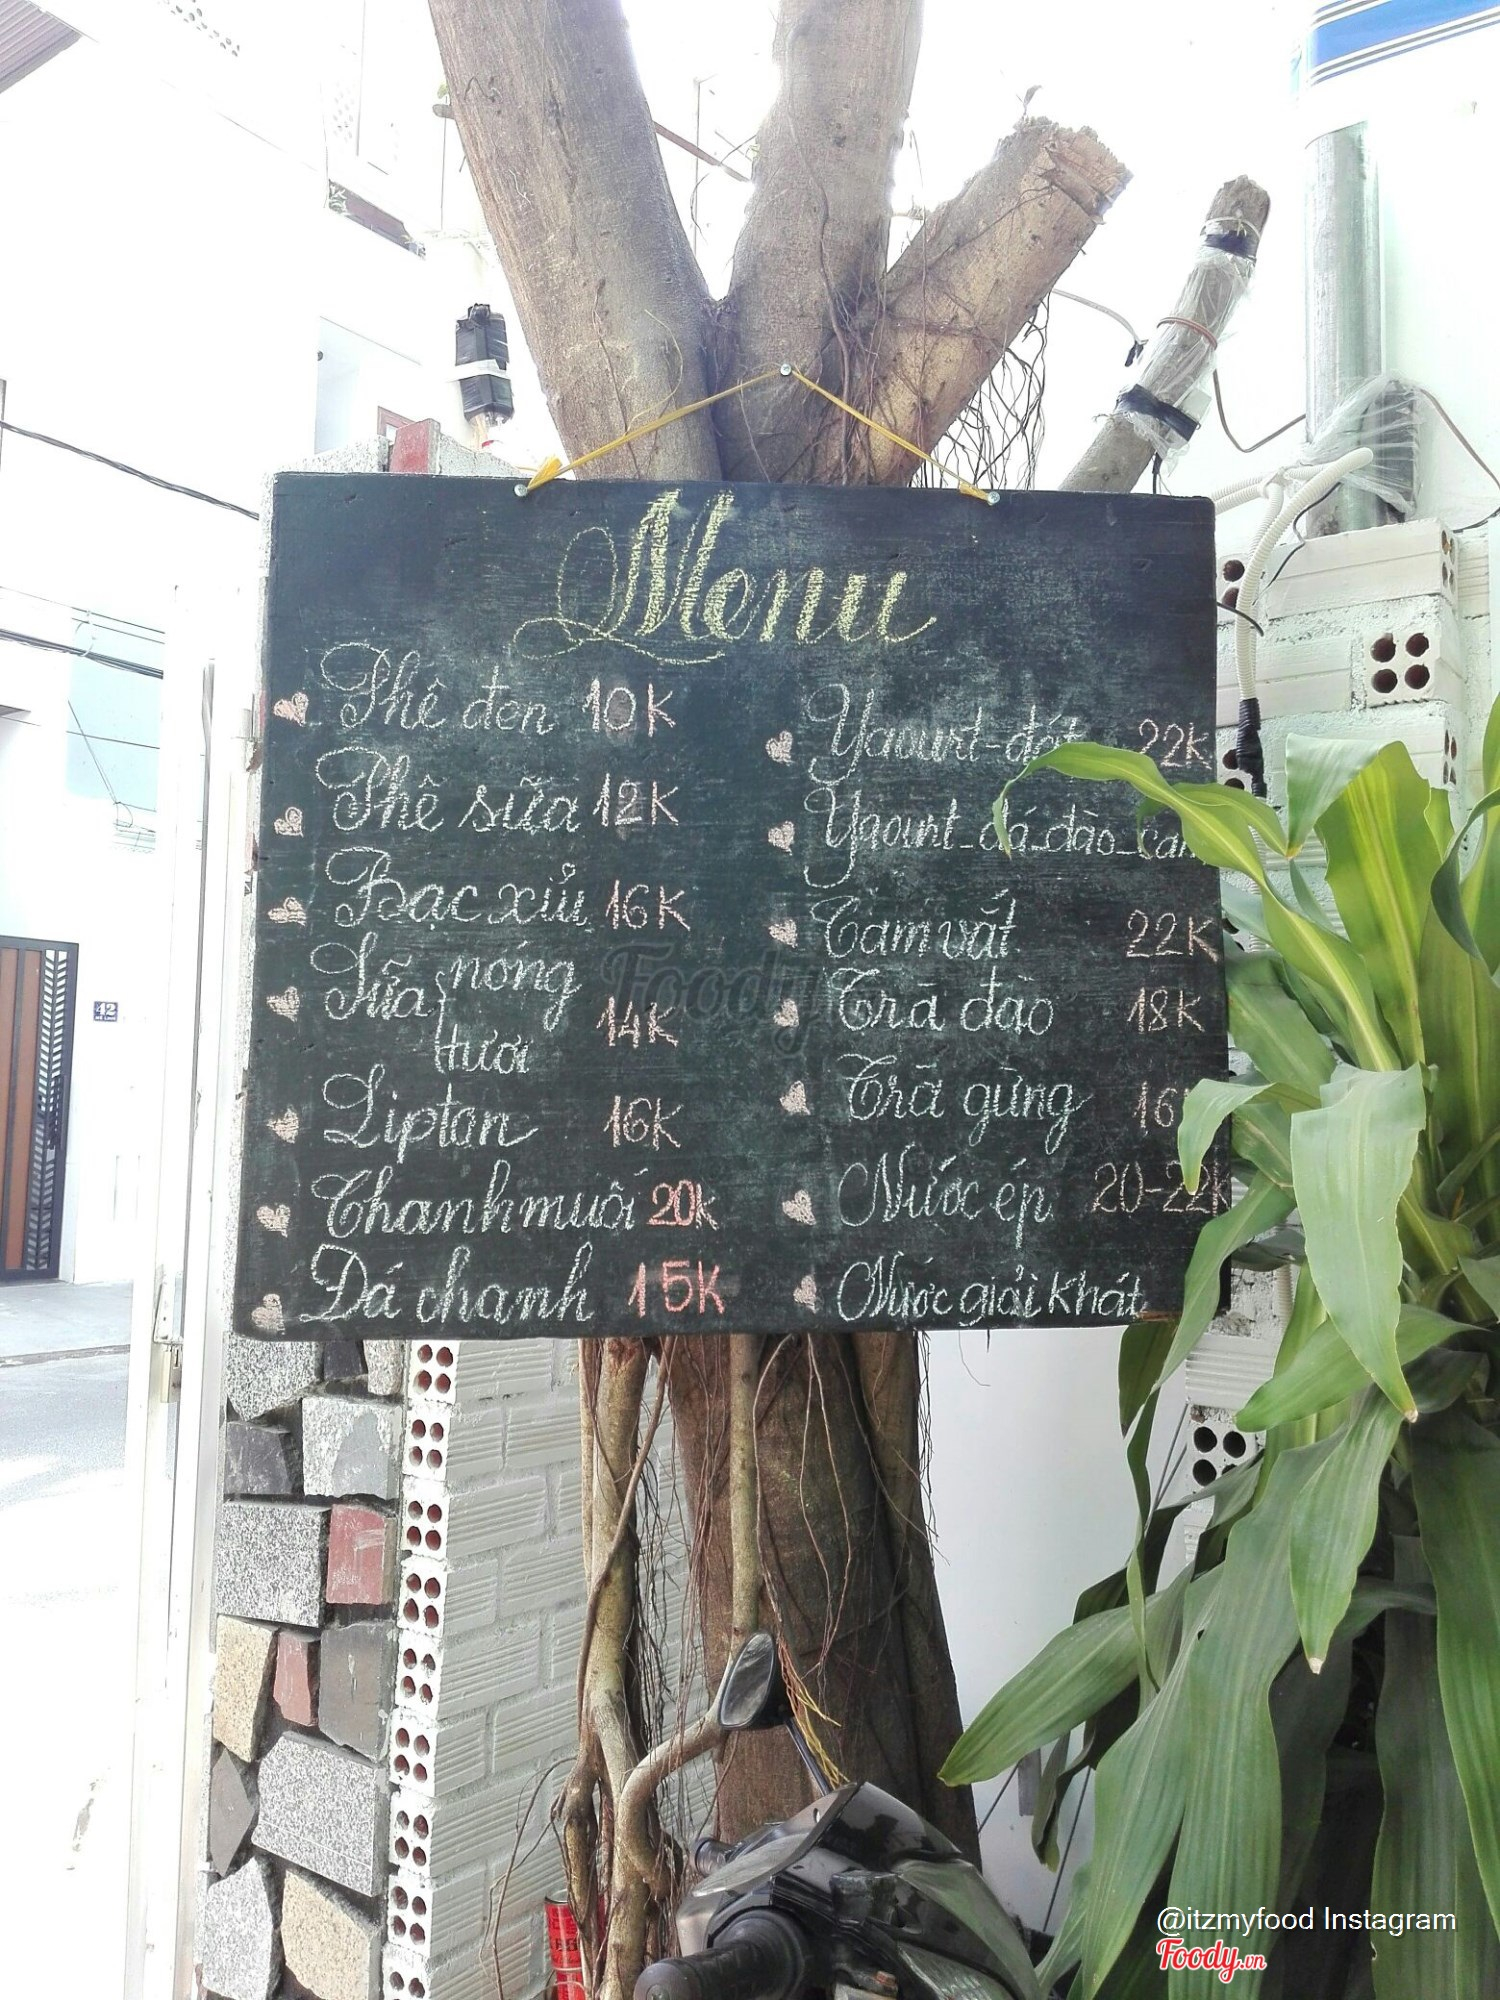 Menu
Phê đen 10K
Phê sữa 12K
Bạc xỉu 16K
Sữa nóng
tươi 14K
Lipton 16K
Chanh muối 20K
Đá chanh 15K
Yaourt-đát 22K
Yaourt_đá_đào_cam
Cam vắt 22K
Trà đào 18K
Trà gừng 16K
Nước ép 20-22K
Nước giải khát
Foody
42
@itzmyfood Instagram
Foody.vn